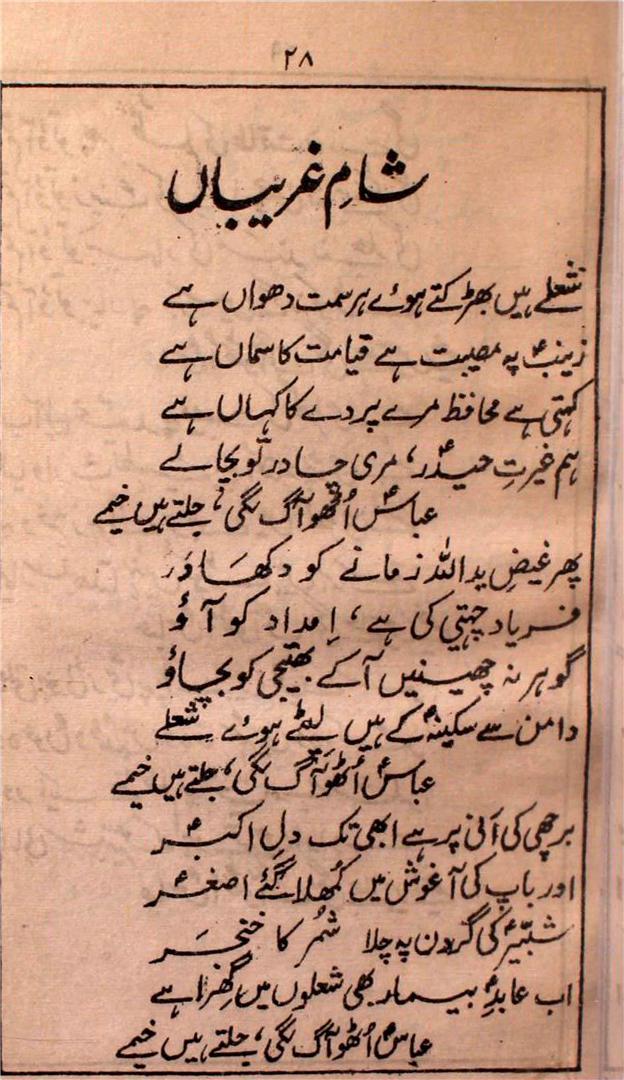 ۲۸
شامِ غریباں
شعلے ہیں بھڑکتے ہوئے ہر سمت دھواں ہے
زینبؑ پہ مصیبت ہے قیامت کا سماں ہے
کہتی ہے محافظ مرے پردے کا کہاں ہے
ہم غیرتِ حیدرؑ، مری چادر تو بچا لے
عباسؑ اُٹھو آگ لگی، جلتے ہیں خیمے
پھر غیضِ یداللہ زمانے کو دکھاؤ
فریاد چہتی کی ہے، اِمداد کو آؤ
گوہر نہ چھینیں آ کے بھتیجی کو بچاؤ
دامن سے سکینہؑ کے ہیں لپٹے ہوئے شعلے
عباسؑ اُٹھو آگ لگی، جلتے ہیں خیمے
برچھی کی اَنی پر ہے ابھی تک دلِ اکبرؑ
اور باپ کی آغوش میں کُمھلا گئے اصغرؑ
شبّیرؑ کی گردن پہ چلا شمُر کا خنجر
اب عابدِؑ بیمار بھی شعلوں میں گھِرا ہے
عباسؑ اُٹھو آگ لگی، جلتے ہیں خیمے